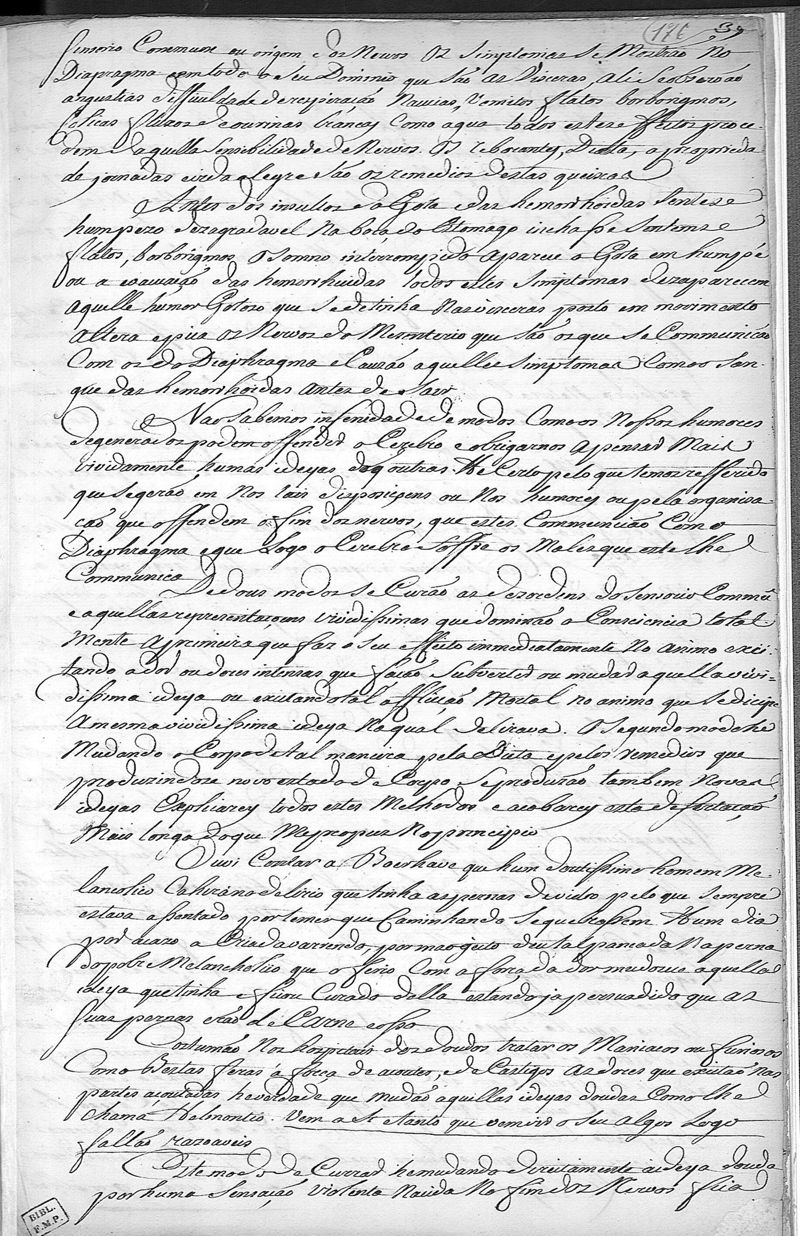 (176) 39
sensorio Commune ou origem dos Nervos os simptomas se Mostrão no
Diapragma com todo o seu Dominio que são as Visceras, ali se observão
angustias difficuldade de respiração Nauzias, Vomitos flatos borborigmos,
Colicas fluxos e ourinas brancas como agua todos estes effeitos proce-
dem daquella sensibilidade de Nervos. Os reborantes, Dieta, a proprieda
de jornadas e vida alegre são os remedios destas queixas
Antes dos insultos da Gota e das hemorrhoidas sentese
hum pezo dezagradavel na boca do Estomago incha sse sentemse
flatos, borborigmos, o somno interrompido aparece a Gota em hum pé
ou a evacuação das hemorrhoidas todos estes simptomas dezaparecem
aquelle humor Gotozo que se detinha nas visceras posto em movimento
altera e pica os Nervos do Mesenterio que são os que se Communicão
Com os do Diaphragma e Cauzão aquelles simptomas Como o san-
gue das hemorrhoidas antes de sair
Nao Sabemos infenidade de modos Como os Nossos humores
degenerados podem offender o Cerebro e obrigarnos a pensar Mais
vividamente humas ideyas doq outras. He Certo pelo que temos refferido
que se gerão em Nos tais dispociçens ou Nos humores ou pela organisa-
cão que offendem o fim dos nervos, que estes Communicão Com o
Diaphragma e que Logo o Cerebro soffre os Males que este lhe
Communica
De dous modos se Curão as dezordens do sensorio Commũ
e aquellas reprezentaçoens vividissimas que dominão a Consciencia total-
mente a primeira que faz o seu effeito immediatamente no animo exci-
tando a dor ou dores intensas que fação Subverter ou mudar aquella vivi-
dissima ideya ou excitando tal afflição Mortal no animo que se dicipe
a mesma vividissima ideya na qual delirava. O segundo modo he
Mudando o Corpo de tal maneira pela Dieta e pelos remedios que
produzindose novo estado de Corpo se produzão tambem Novas
ideyas Explicarey todos estes Melhodos e acabarey esta desertação
Mais longa do que Me propuz no principio
Ouvi Contar a Boerhave que hum doutissimo homem Me-
lancolico Cahira no delirio que tinha as pernas de vidro pelo que sempre
estava assentado por temer que Caminhando se quebrassem Hum dia
por acazo a Criada varrendo, por mao geito deu tal pancada na perna
do pobre Melancholico que o ferio Com a força da dor mudouse aquella
ideya que tinha e ficou Curado della estando ja persuadido que as
suas pernas erão de Carne e osso
Costumão nos hospitais dos doudos tratar os Maniacos ou furiosos
como Bestas feras a força de acoutes, e de Castigos as dores que excitão nas
partes acoutadas he verdade que mudão aquellas ideyas doudas Como lhe
chama Helmontio. Vem a si e tanto que vem vir o seu algos Logo
fallão razoaveis
Este modo de Currar he mudando direitamente a ideya douda
por huma Sensação violenta Nacida No fim dos Nervos fica
BIBL.
F.M.P.